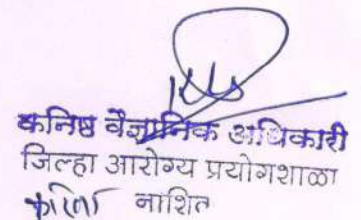 कनिष्ठ वैज्ञानिक अधिकारी
जिल्हा आरोग्य प्रयोगशाळा
नाशित